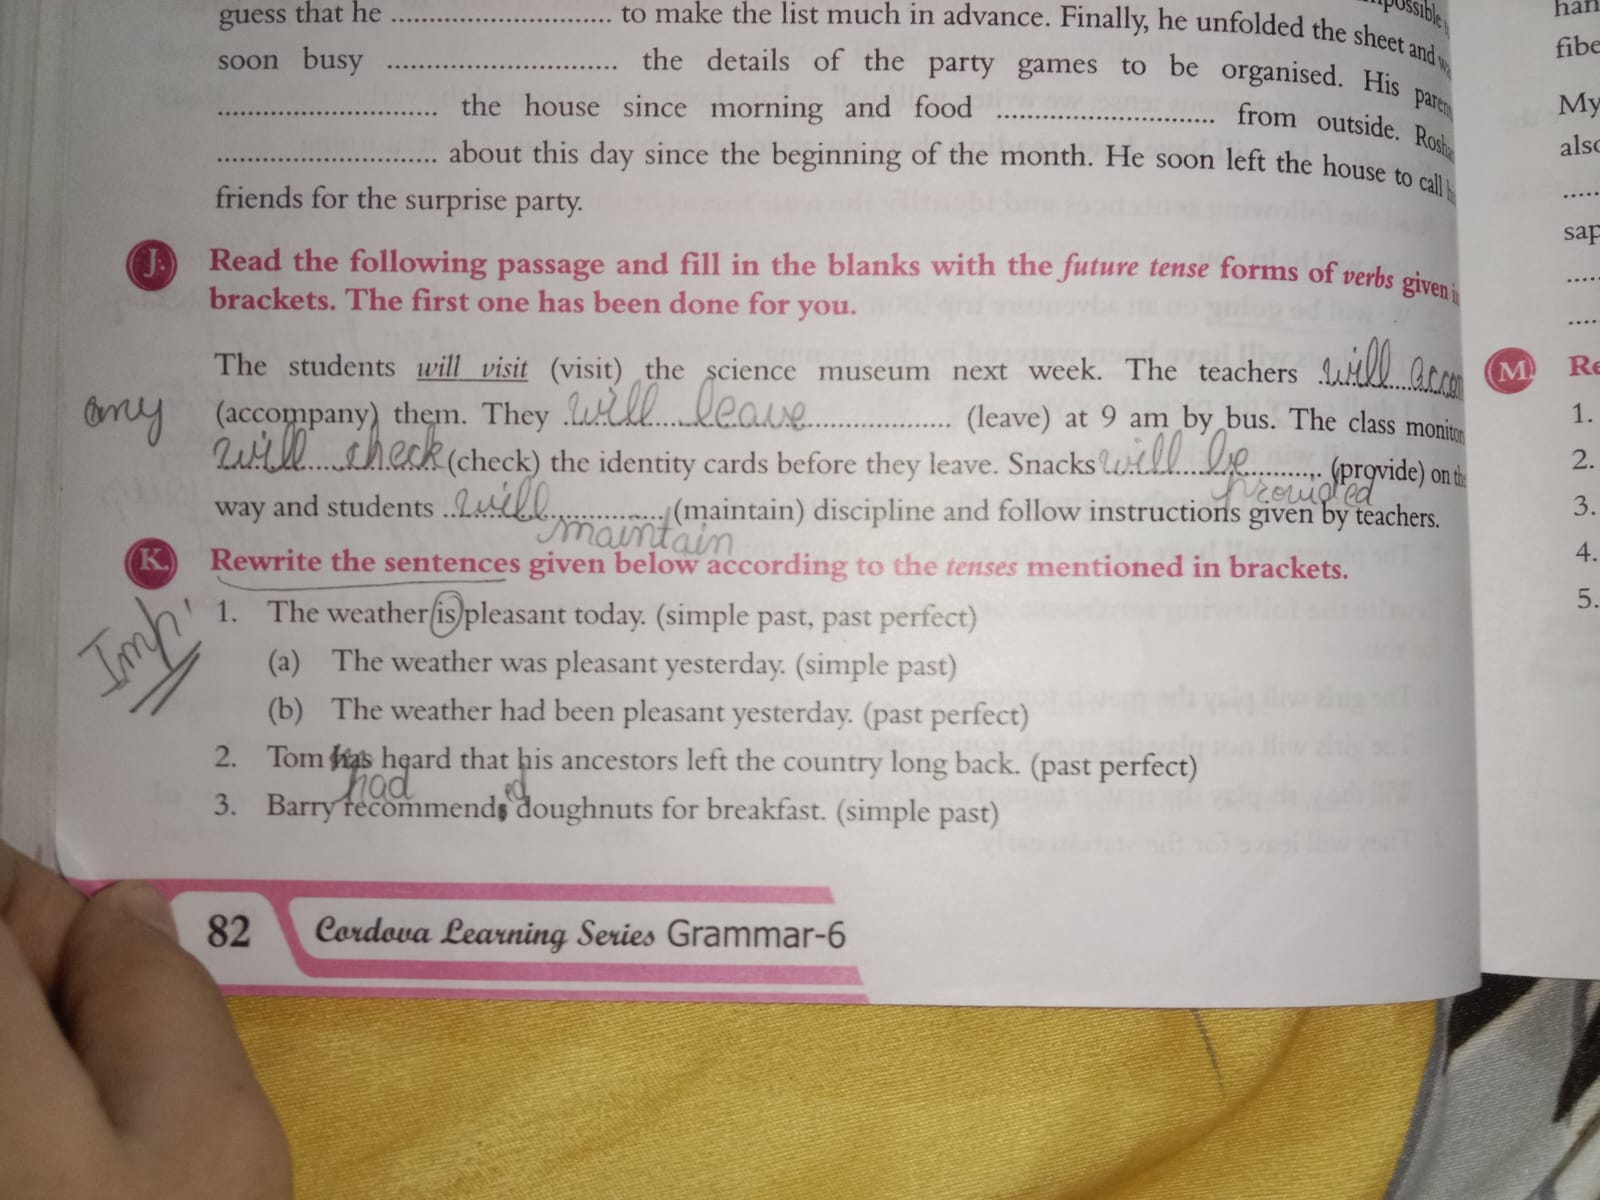 guess that he ............................ to make the list much in advance. Finally, he unfolded the sheet and
soon busy ............................ the details of the party games to be organised. His
............................ the house since morning and food ............................ from outside.
............................ about this day since the beginning of the month. He soon left the house to call
friends for the surprise party.
J. Read the following passage and fill in the blanks with the future tense forms of verbs given
brackets. The first one has been done for you.
The students will visit (visit) the science museum next week. The teachers will accom
any (accompany) them. They will leave (leave) at 9 am by bus. The class monitor
will check (check) the identity cards before they leave. Snacks will be (provide) on the
provided
way and students will (maintain) discipline and follow instructions given by teachers.
maintain
K. Rewrite the sentences given below according to the tenses mentioned in brackets.
Imp
1. The weather is pleasant today. (simple past, past perfect)
(a) The weather was pleasant yesterday. (simple past)
(b) The weather had been pleasant yesterday. (past perfect)
2. Tom has heard that his ancestors left the country long back. (past perfect)
had
ed
3. Barry recommends doughnuts for breakfast. (simple past)
82 Cordova Learning Series Grammar-6
My
M.
1.
2.
3.
4.
5.